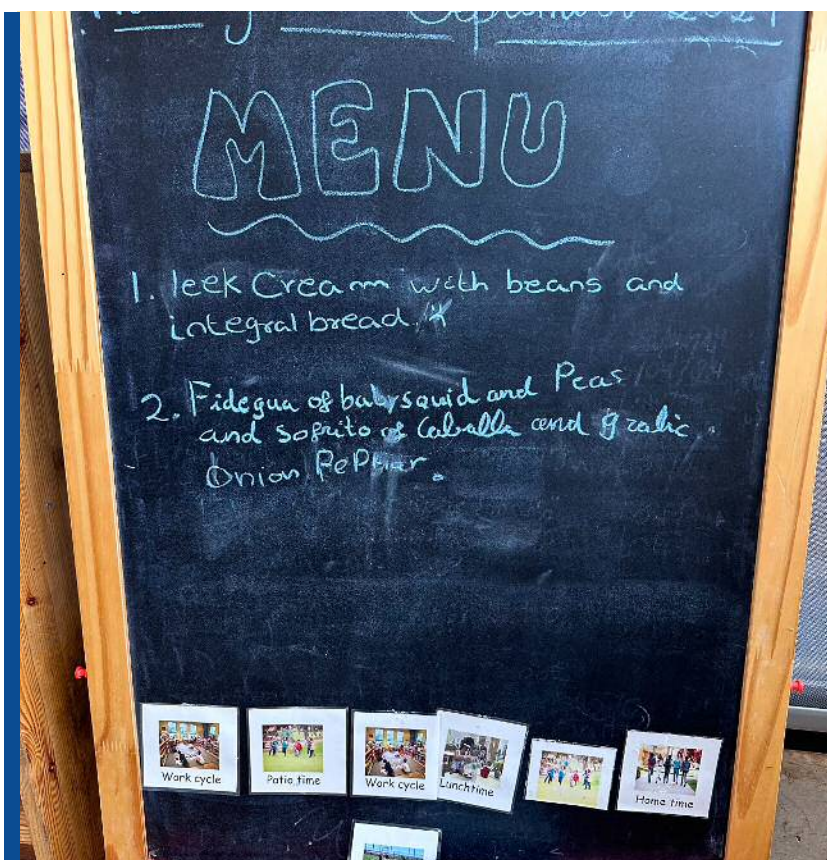 September 2021
MENU
1. leek Cream with beans and
integral bread.
2. Fidegua of baby squid and Peas
and Sofrito of Caballa and gralic.
Onion PePper.
Work cycle
Patio time
Work cycle
Lunchtime
Home time